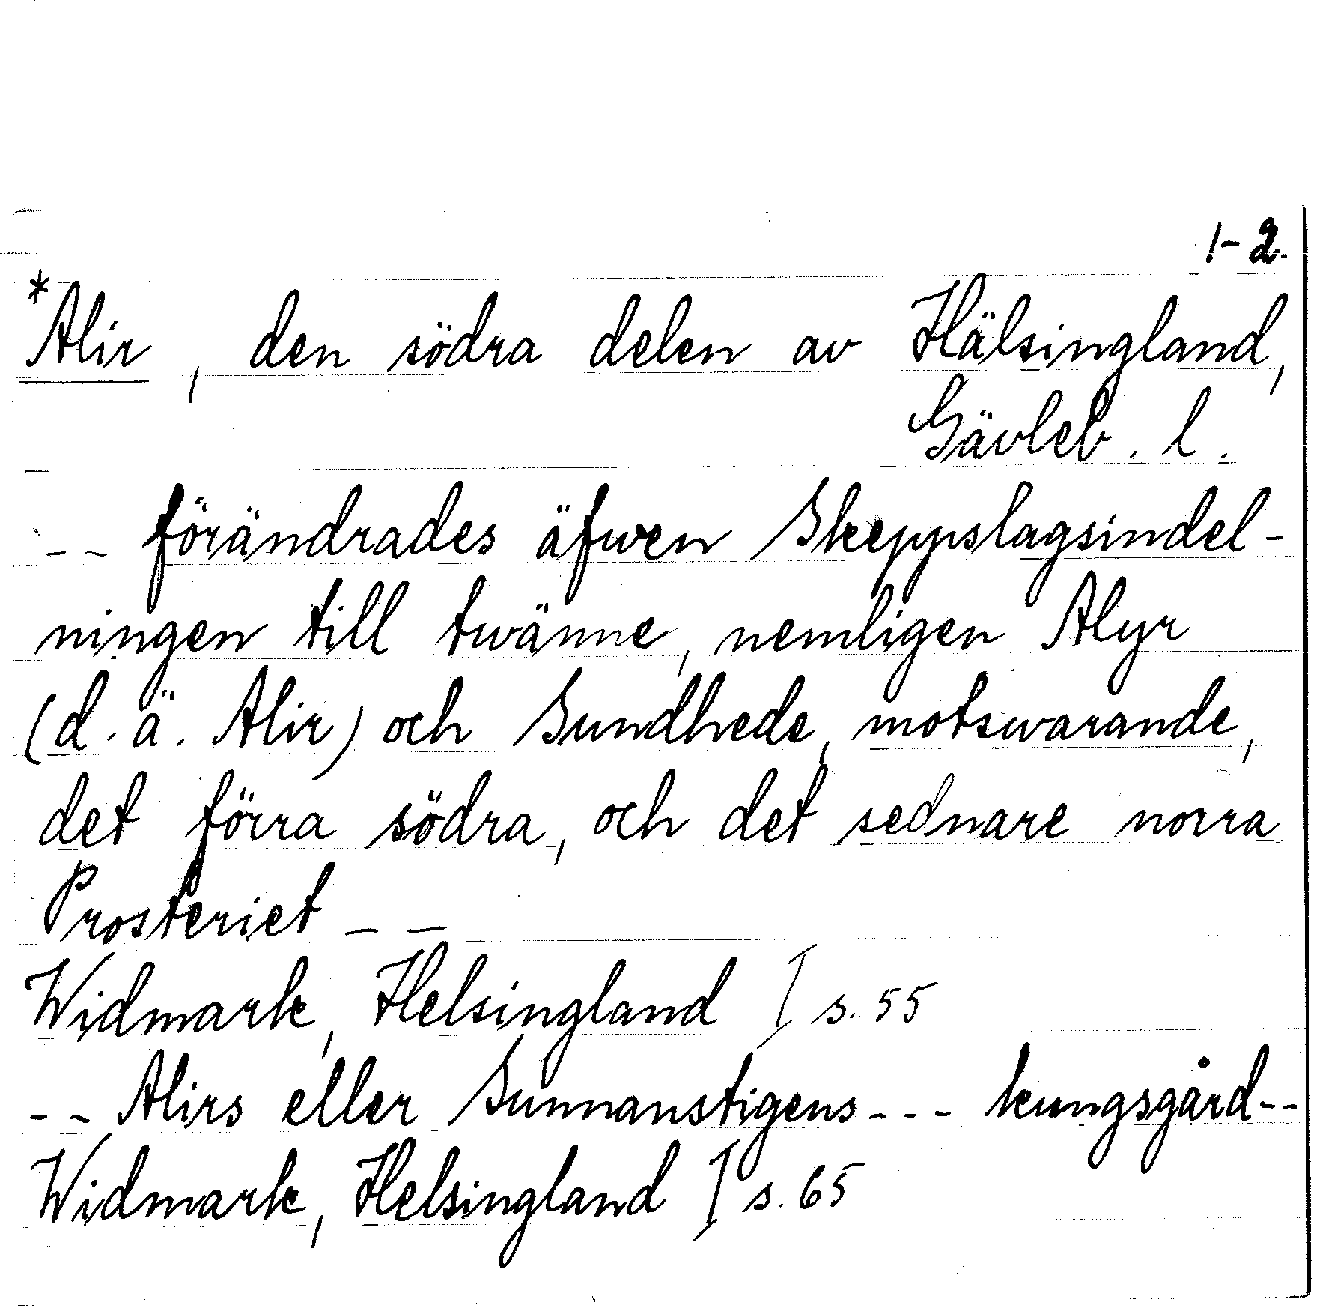 1-2.
*Alir, den södra delen av Hälsingland,
Gävleb. l.
-- förändrades äfwen Skeppslagsindel-
ningen till twänne, nemligen Alyr
(d. ä. Alir) och Sundhede, motswarande,
det förra södra, och det sednare norra
Prosteriet --
Widmark, Helsingland I s. 55
-- Alirs eller Sunnanstigens --- kungsgård--
Widmark, Helsingland I s. 65